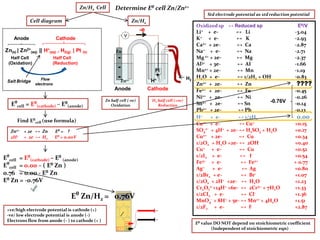 Zn/H2 Cell
Determine Eθ cell Zn/Zn2+
Cell diagram
Zn/H2
Std electrode potential as std reduction potential
Anode Cathode
Half Cell Half Cell
(Oxidation) (Reduction)
Salt Bridge Flow
electrons
Anode Cathode
Zn half cell / oxi /
Oxidation
H2 half cell / red /
Reduction
Eθcell = Eθ(cathode) – Eθ(anode)
Find Eθcell (use formula)
Zn2+ + 2e ↔ Zn Eθ = ?
2H+ + 2e ↔ H2 Eθ = 0.00V
Eθcell = Eθ(cathode) – Eθ(anode)
Eθcell = 0.00 – ( Eθ Zn )
0.76 = 0.00 - Eθ Zn
Eθ Zn = -0.76V
Eθ Zn/H2 = 0.76V
+ve/high electrode potential is cathode (+)
-ve/ low electrode potential is anode (-)
Electrons flow from anode ( - ) to cathode ( + )
Oxidised sp ↔ Reduced sp Eθ/V
Li+ + e- ↔ Li -3.04
K+ + e- ↔ K -2.93
Ca2+ + 2e- ↔ Ca -2.87
Na+ + e- ↔ Na -2.71
Mg2+ + 2e- ↔ Mg -2.37
Al3+ + 3e- ↔ Al -1.66
Mn2+ + 2e- ↔ Mn -1.19
H2O + e- ↔ 1/2H2 + OH- -0.83
Zn2+ + 2e- ↔ Zn
????
Fe2+ + 2e- ↔ Fe -0.45
Ni2+ + 2e- ↔ Ni -0.26
-0.76V
Sn2+ + 2e- ↔ Sn -0.14
Pb2+ + 2e- ↔ Pb -0.13
H+ + e- ↔ 1/2H2 0.00
Cu2+ + e- ↔ Cu+ +0.15
SO42- + 4H+ + 2e- ↔ H2SO3 + H2O +0.17
Cu2+ + 2e- ↔ Cu +0.34
1/2O2 + H2O +2e- ↔ 2OH- +0.40
Cu+ + e- ↔ Cu +0.52
1/2I2 + e- ↔ I- +0.54
Fe3+ + e- ↔ Fe2+ +0.77
Ag+ + e- ↔ Ag +0.80
1/2Br2 + e- ↔ Br- +1.07
1/2O2 + 2H+ +2e- ↔ H2O +1.23
Cr2O72- +14H+ +6e- ↔ 2Cr3+ + 7H2O +1.33
1/2Cl2 + e- ↔ Cl- +1.36
MnO4- + 8H+ + 5e- ↔ Mn2+ + 4H2O +1.51
1/2F2 + e- ↔ F- +2.87
Eθ value DO NOT depend on stoichiometric coefficient
(Independent of stoichiometric eqn)